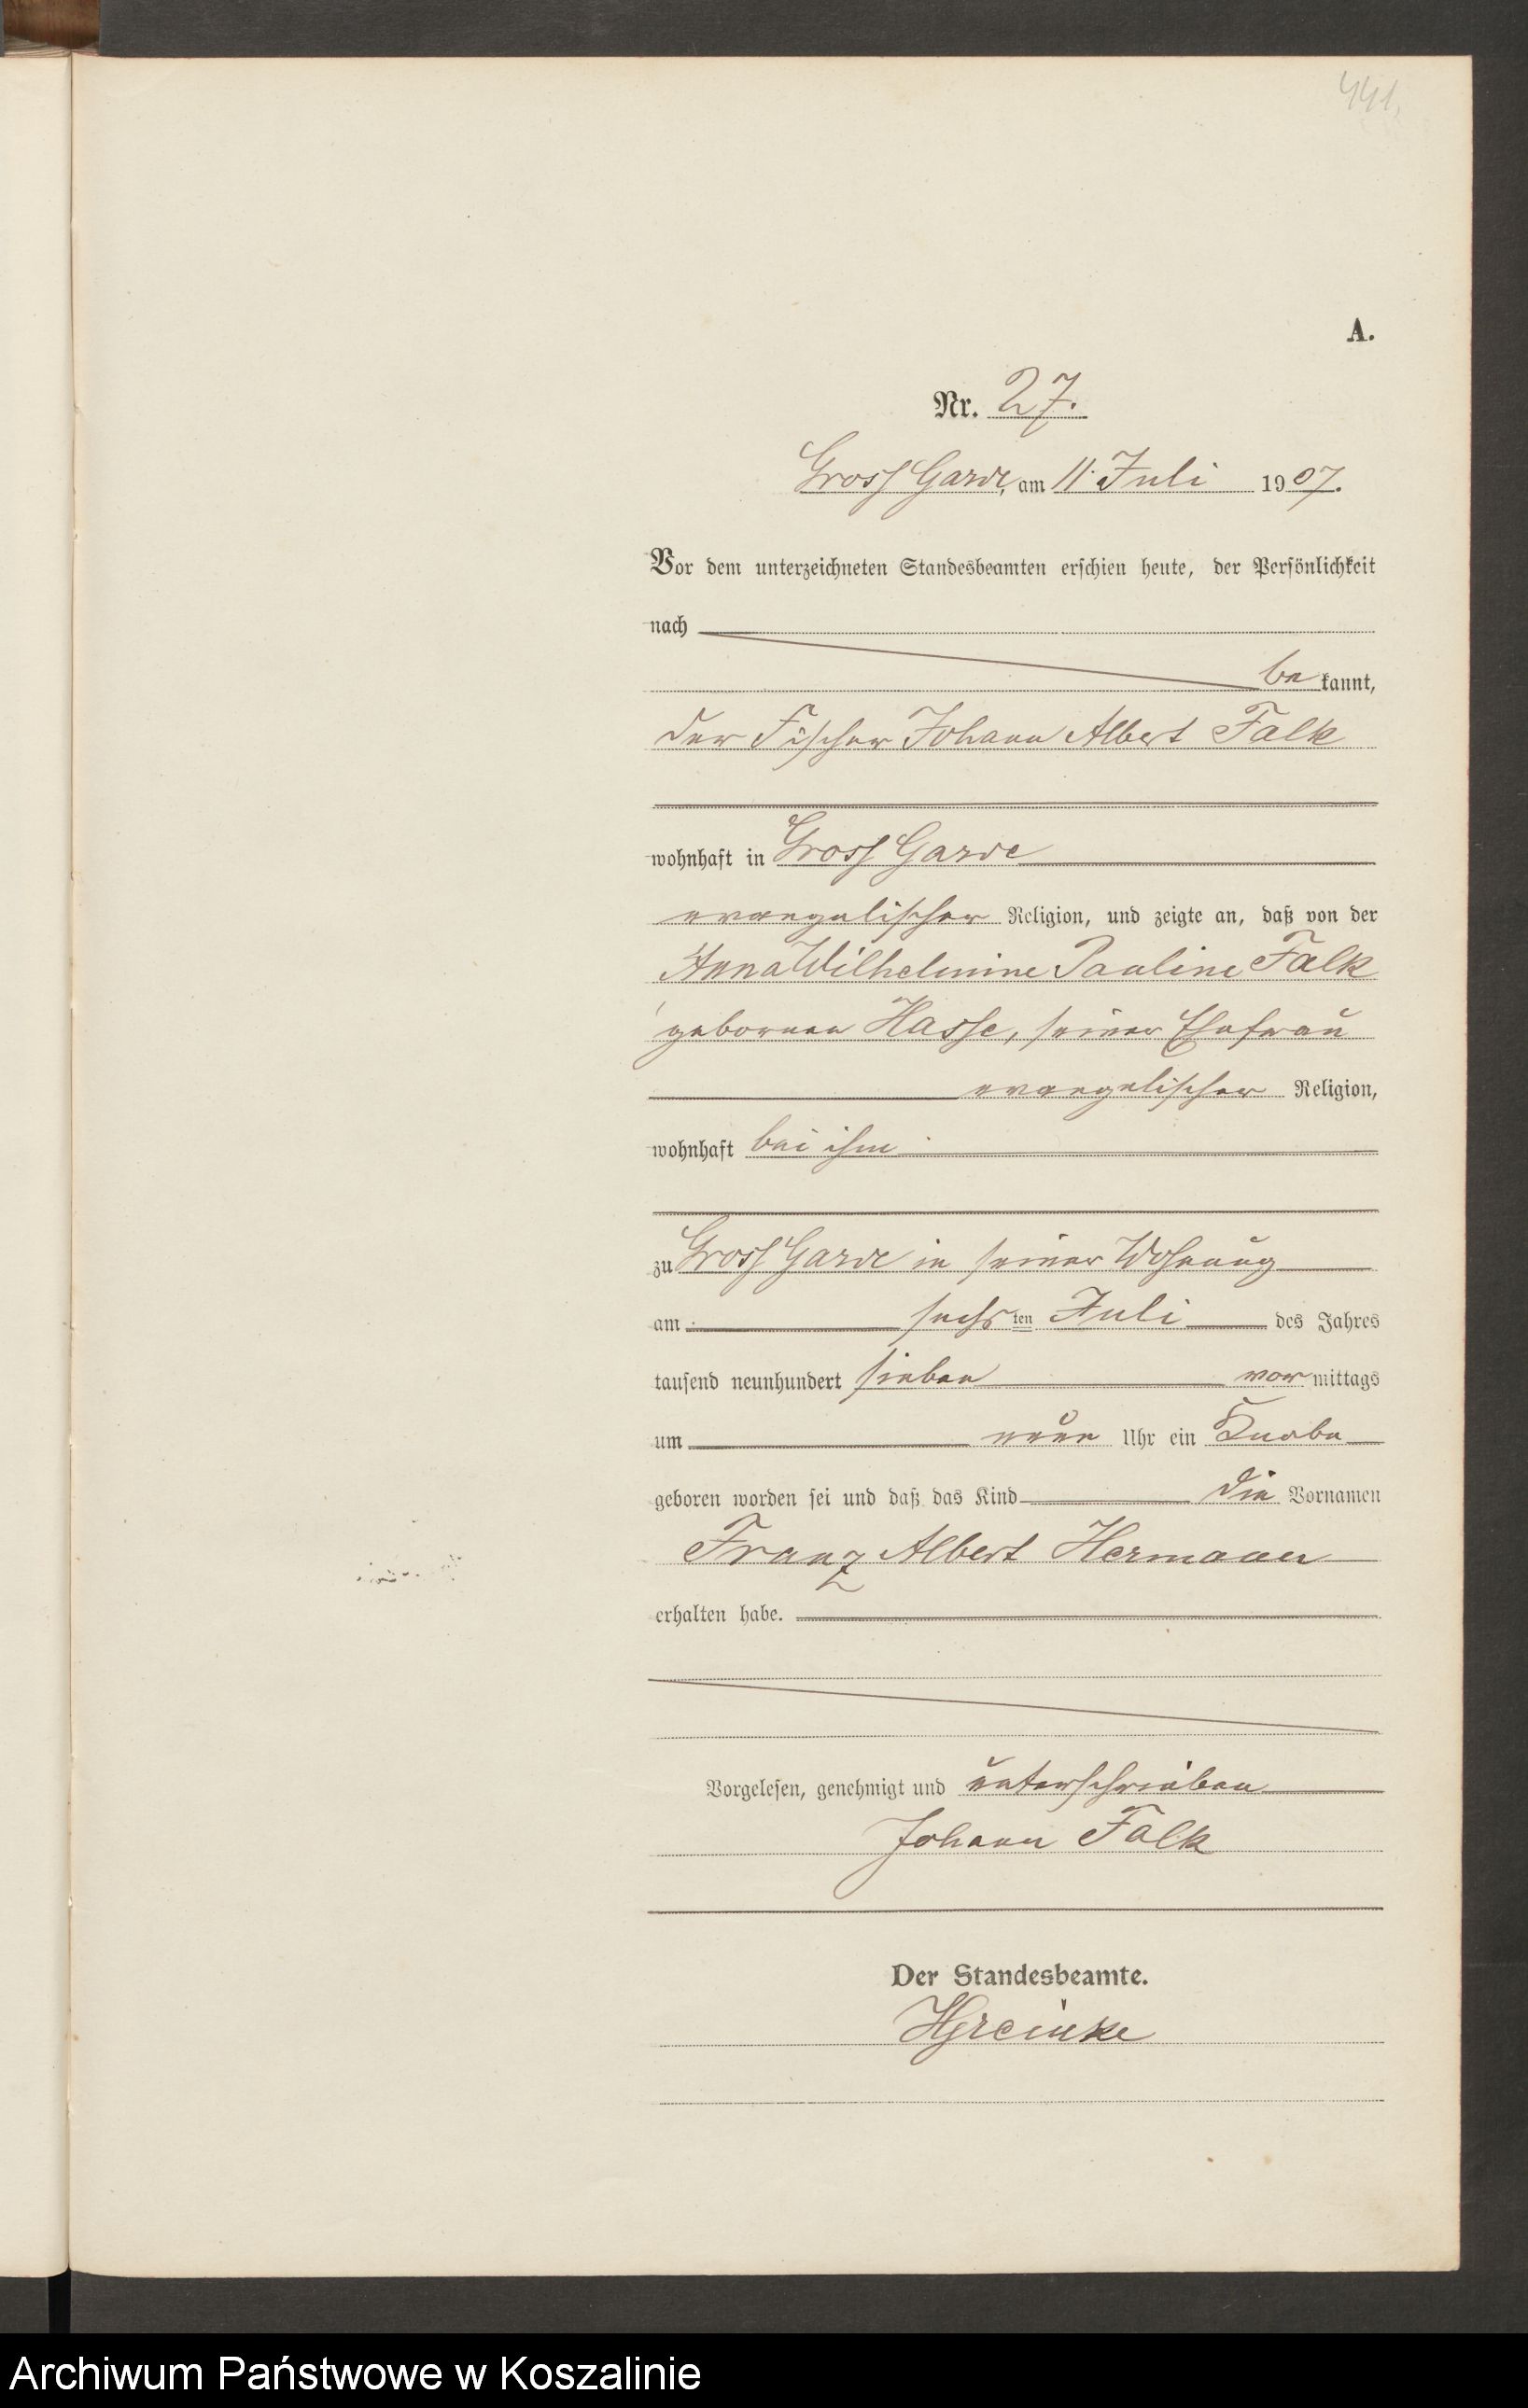 441.
A.
Nr. 27.
Gross Garde, am 11. Juli 1907.
Vor dem unterzeichneten Standesbeamten erschien heute, der Persönlichkeit
nach
be kannt,
der Fischer Johann Albert Falk
wohnhaft in Gross Garde
evangelischer Religion, und zeigte an, daß von der
Anna Wilhelmine Pauline Falk
gebornen Hasse, seiner Ehefrau
evangelischer Religion,
wohnhaft bei ihm
zu Gross Garde in seiner Wohnung
am sechsten Juli des Jahres
tausend neunhundert sieben vormittags
um neun Uhr ein Knabe
geboren worden sei und daß das Kind die Vornamen
Franz Albert Hermann
erhalten habe.
Vorgelesen, genehmigt und unterschrieben
Johann Falk
Der Standesbeamte.
Archiwum Państwowe w Koszalinie